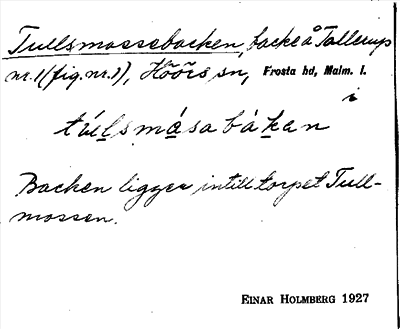 Tullsmossebacken, backe å Tullerup
nr. 1 (fig. nr. 1), Höörs sn, Frosta hd, Malm. l.
i
túlsmåsabákan
Backen ligger intill torpet Tull-
mossen.
EINAR HOLMBERG 1927